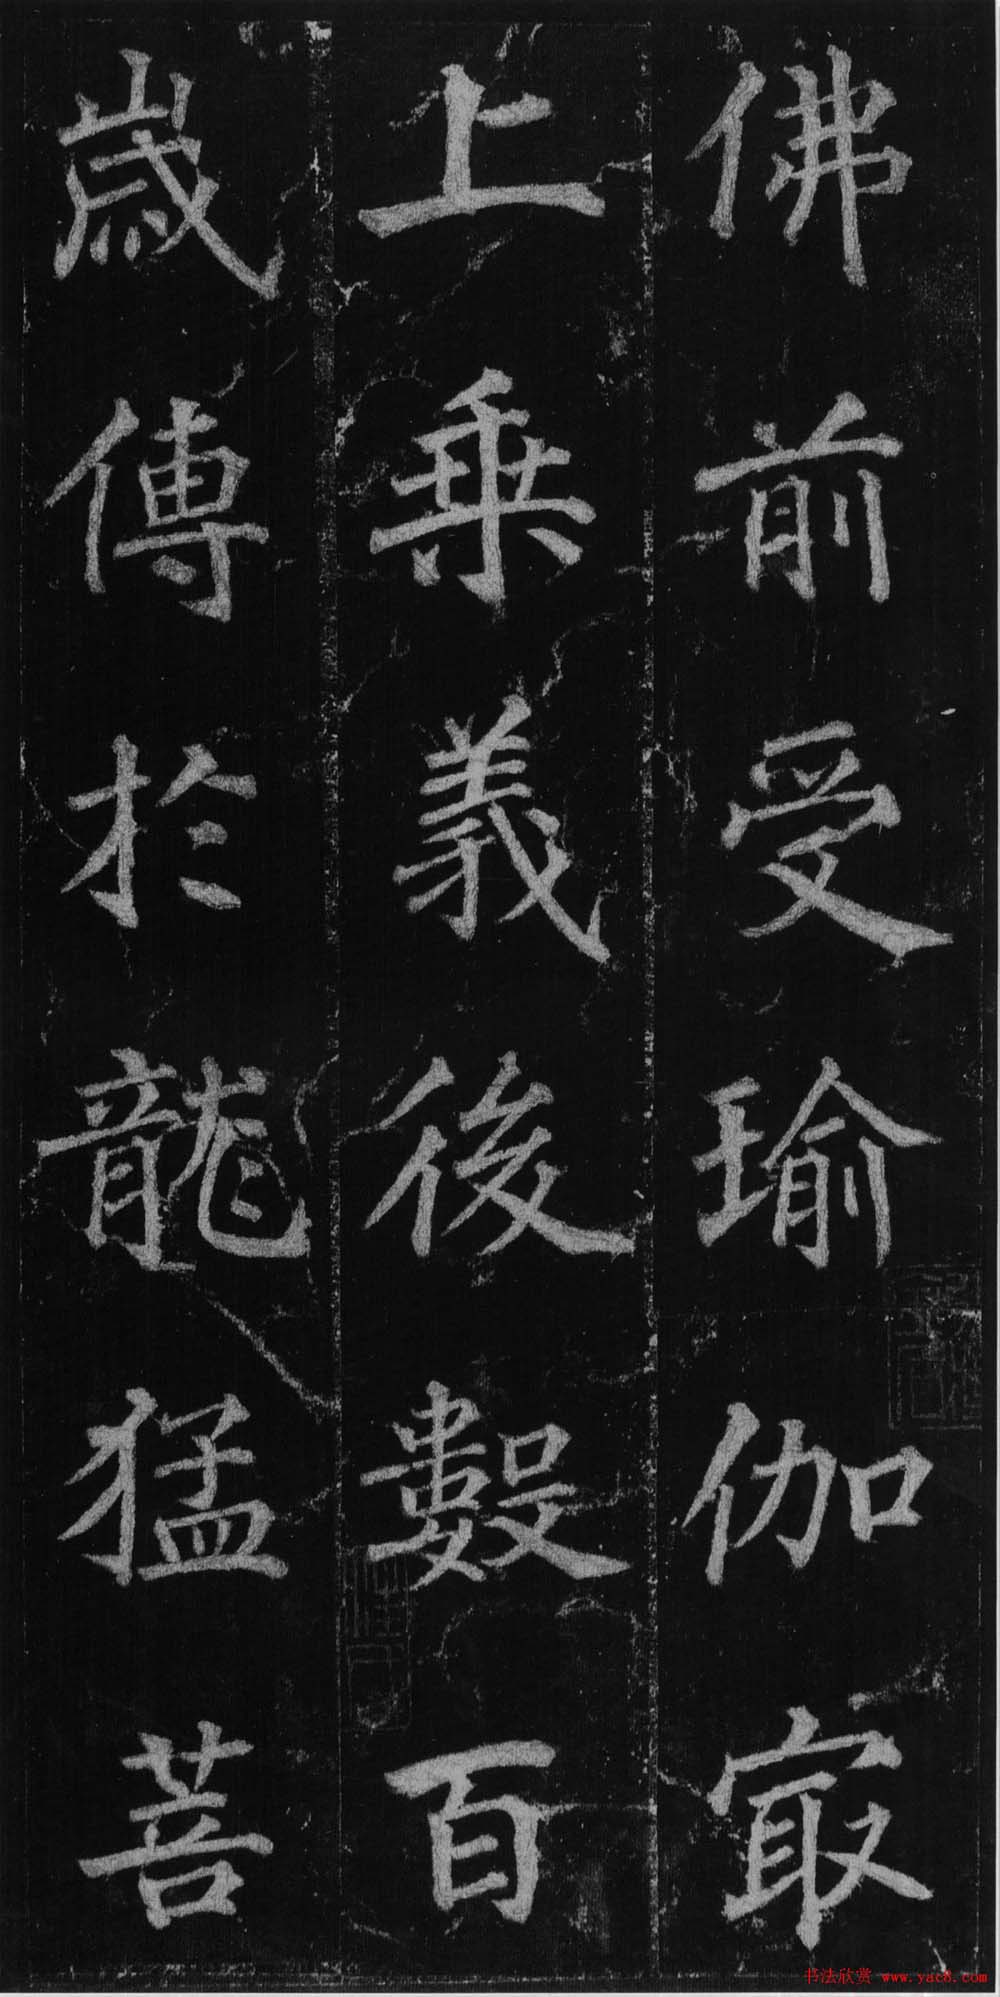 佛前受瑜伽冣
上乗義後數百
歲傳於龍猛菩
书法欣赏 www.yac8.com